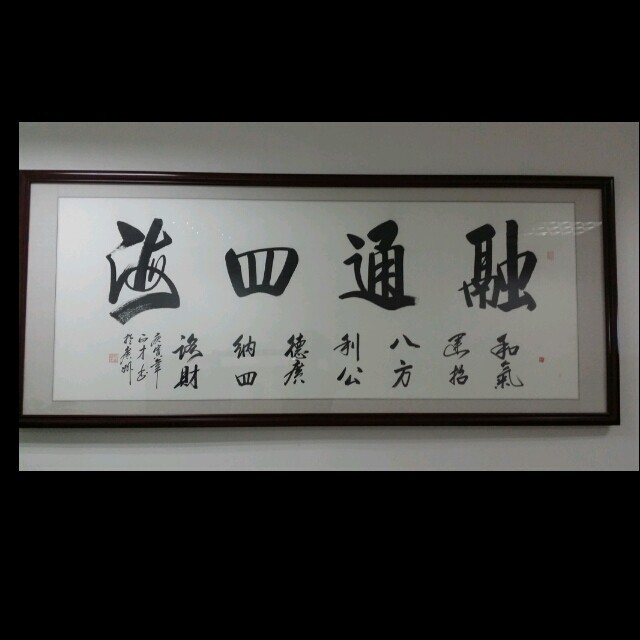 融通四海
和氣
招
八方
利公
德廣
納四
海財
庚寅年
於廣州